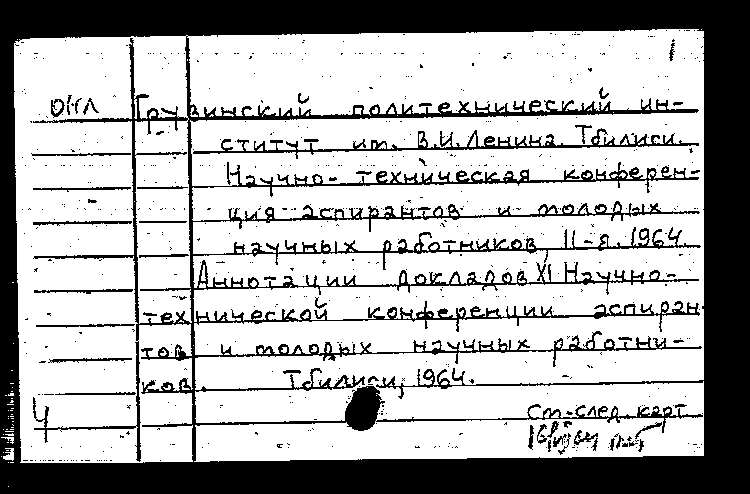 1
ОНЛ Грузинский политехнический ин-
ститут им. В.И. Ленина. Тбилиси.
Научно-техническая конферен-
ция аспирантов и молодых
научных работников, 11-я. 1964.
Аннотации докладов XI Научно-
технической конференции аспиран-
тов и молодых научных работни-
ков. Тбилиси, 1964.
Ч См. след. карт